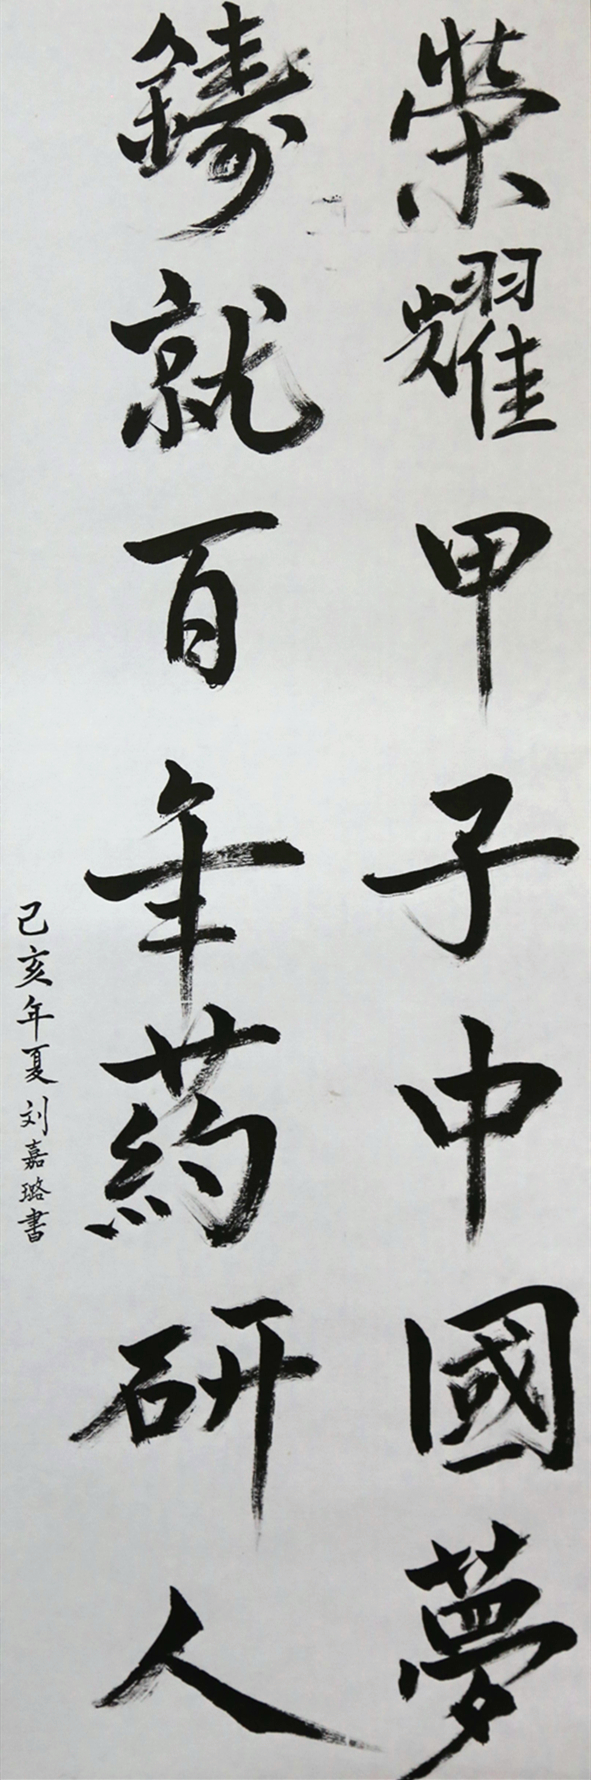 榮耀甲子中國夢
鑄就百年药研人
己亥年夏刘嘉璐書